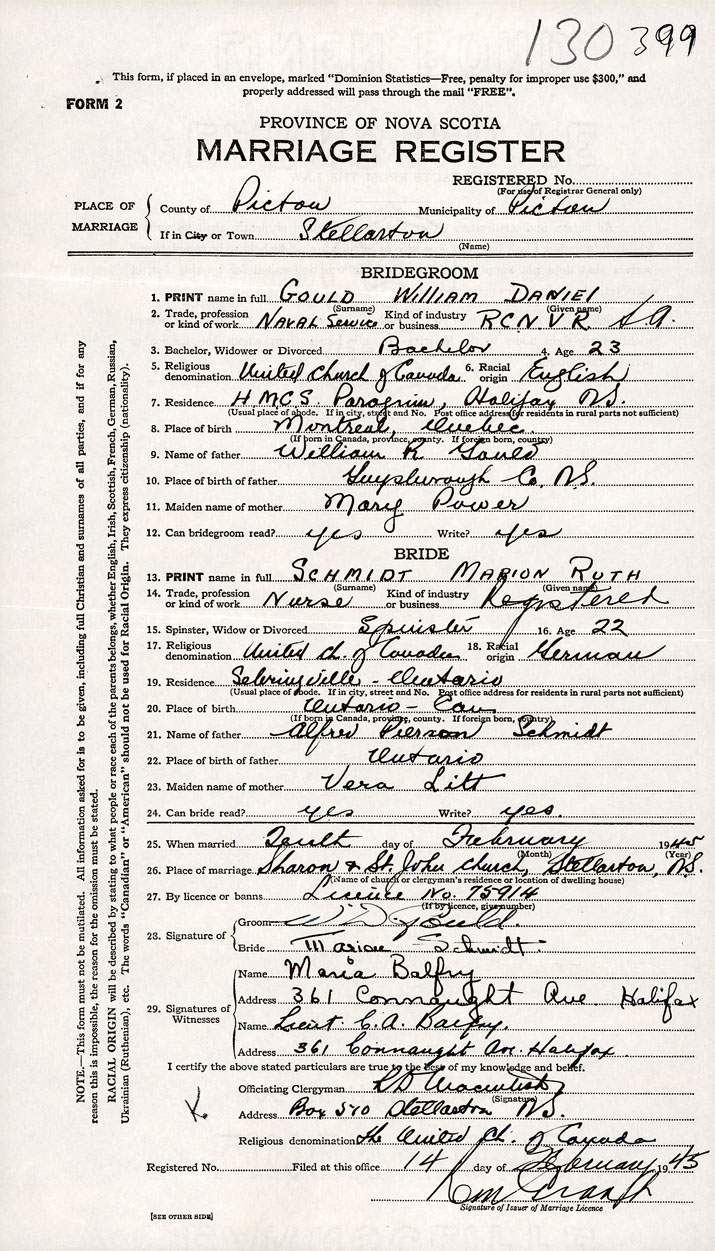 130 399
This form, if placed in an envelope, marked "Dominion Statistics—Free, penalty for improper use $300," and
properly addressed will pass through the mail "FREE".
FORM 2
PROVINCE OF NOVA SCOTIA
MARRIAGE REGISTER
REGISTERED No.
(For use of Registrar General only)
PLACE OF MARRIAGE
County of Pictou Municipality of Pictou
If in City or Town Stellarton
(Name)
BRIDEGROOM
1. PRINT name in full GOULD WILLIAM DANIEL
(Surname) (Given name)
2. Trade, profession or kind of work NAVAL Service Kind of industry or business RCNVR S.A.
3. Bachelor, Widower or Divorced Bachelor 4. Age 23
5. Religious denomination United Church of Canada 6. Racial origin English
7. Residence H.M.C.S. Peregrim, Halifax N.S.
(Usual place of abode. If in city, street and No. Post office address for residents in rural parts not sufficient)
8. Place of birth Montreal, Quebec.
(If born in Canada, province, county. If foreign born, country)
9. Name of father William R Gould
10. Place of birth of father Guysborough Co. N.S.
11. Maiden name of mother Mary Power
12. Can bridegroom read? yes Write? yes
BRIDE
13. PRINT name in full SCHMIDT MARION RUTH
(Surname) (Given name)
14. Trade, profession or kind of work Nurse Kind of industry or business Registered
15. Spinster, Widow or Divorced Spinster 16. Age 22
17. Religious denomination United Ch. of Canada 18. Racial origin German
19. Residence Sebringville - Ontario
(Usual place of abode. If in city, street and No. Post office address for residents in rural parts not sufficient)
20. Place of birth Ontario - Can
(If born in Canada, province, county. If foreign born, country)
21. Name of father Alfred Pierson Schmidt
22. Place of birth of father Ontario
23. Maiden name of mother Vera Litt
24. Can bride read? yes Write? yes.
25. When married Tenth day of February 1945
(Month) (Year)
26. Place of marriage Sharon & St. John Church, Stellarton, N.S.
(Name of church or clergyman's residence or location of dwelling house)
27. By licence or banns Licence No. 75914
(If by licence, give number)
28. Signature of
Groom W D Gould.
Bride Marion Schmidt.
29. Signatures of Witnesses
Name Maria Balfry
Address 361 Connaught Ave. Halifax
Name Lieut. C.A. Balfry.
Address 361 Connaught Ave. Halifax.
I certify the above stated particulars are true to the best of my knowledge and belief.
Officiating Clergyman
(Signature)
Address Box 570 Stellarton N.S.
Religious denomination The United Ch. of Canada
Registered No. Filed at this office 14 day of February 1945
Signature of Issuer of Marriage Licence
[SEE OTHER SIDE]
NOTE.—This form must not be mutilated. All information asked for is to be given, including full Christian and surnames of all parties, and if for any
reason this is impossible, the reason for the omission must be stated.
RACIAL ORIGIN will be described by stating to what people or race each of the parents belongs, whether English, Irish, Scottish, French, German, Russian,
Ukrainian (Ruthenian), etc. The words "Canadian" or "American" should not be used for Racial Origin. They express citizenship (nationality).